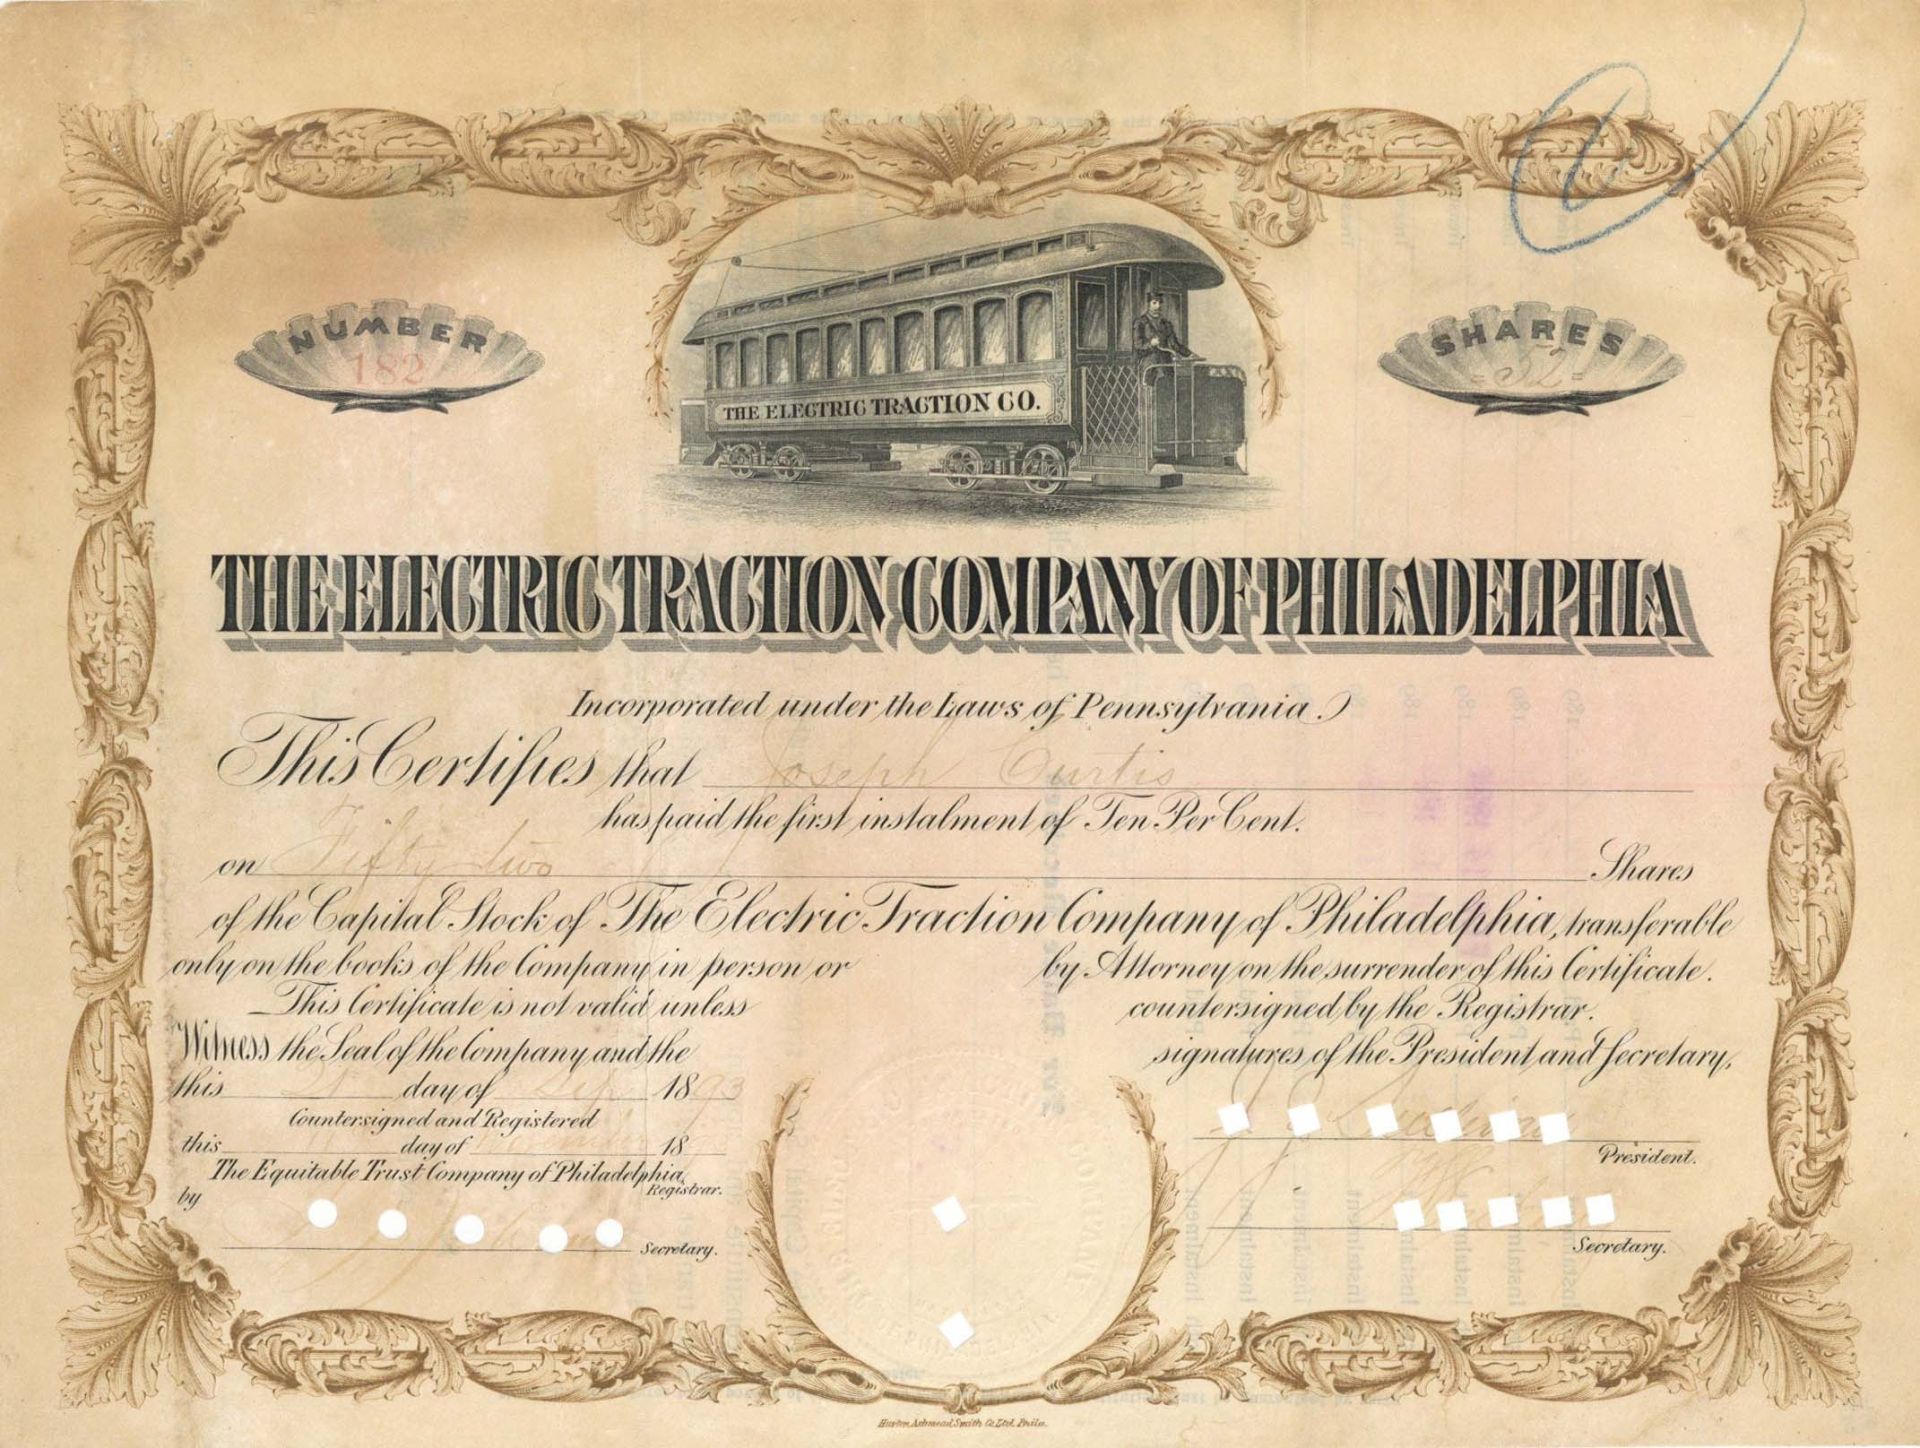 NUMBER
182
SHARES
52
THE ELECTRIC TRACTION CO.
THE ELECTRIC TRACTION COMPANY OF PHILADELPHIA
Incorporated under the Laws of Pennsylvania.
This Certifies that Joseph Curtis
has paid the first instalment of Ten Per Cent.
on Fifty two Shares
of the Capital Stock of The Electric Traction Company of Philadelphia, transferable
only on the books of the Company in person or by Attorney on the surrender of this Certificate.
This Certificate is not valid unless countersigned by the Registrar.
Witness the Seal of the Company and the signatures of the President and Secretary,
this day of Sep 1893
Countersigned and Registered
this day of 18
The Equitable Trust Company of Philadelphia,
Registrar.
by
Secretary.
President.
Secretary.
Hurton Ashmead Smith Co Ltd. Phila.